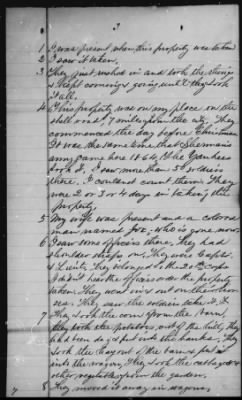 3
1 I was present when this property was taken
2 I saw it taken.
3 They just rushed in and took the things
& kept comeing & going until they took
it all.
4 This property was on my place on the
shell road, 7 miles from the city. They
commenced the day before Christmas
It was the same time that Sherman's
army came here 1864. The Yankees
took it, I saw more than 50 soldiers
there. I couldnt count them. They
were 2 or 3 or 4 days in taking the
property.
5 My wife was present and a colored
man named Joe, who is gone now.
6 I saw some officers there, They had
shoulder straps on, They were Capts.
& Lieuts, They belonged to the 20th Corps
I didn't hear the officers order the property
taken. They went right out on the
They saw the soldiers take it.
7 They took the corn from the barn,
they took the potatoes out of the
had been dug & put into the banks, they
took the hay out of the barn & put
into the wagons, They took the cabbages &
other vegetables from the garden.
8 They moved it away in wagons,